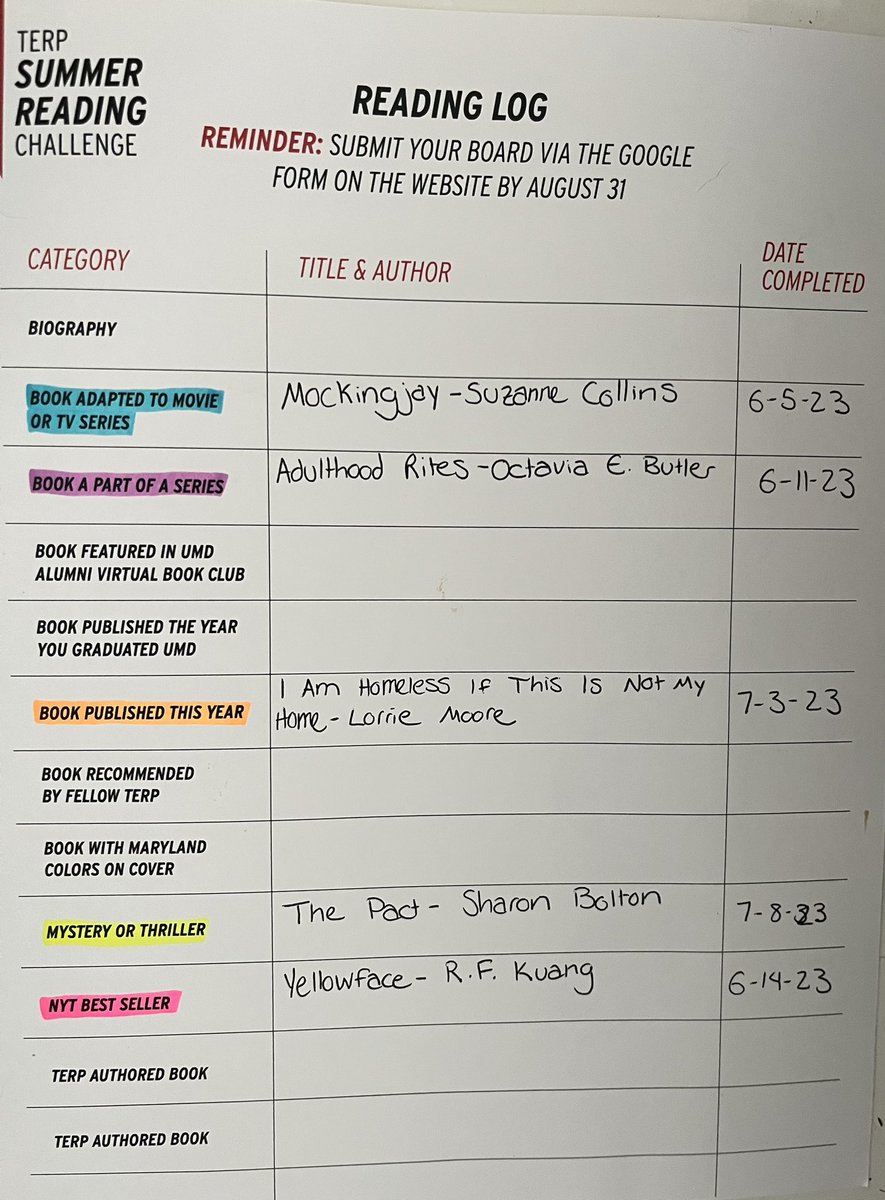 TERP
SUMMER
READING
CHALLENGE
READING LOG
REMINDER: SUBMIT YOUR BOARD VIA THE GOOGLE
FORM ON THE WEBSITE BY AUGUST 31
CATEGORY
TITLE & AUTHOR
DATE
COMPLETED
BIOGRAPHY
BOOK ADAPTED TO MOVIE
OR TV SERIES
Mockingjay - Suzanne Collins
6-5-23
BOOK A PART OF A SERIES
Adulthood Rites - Octavia E. Butler
6-11-23
BOOK FEATURED IN UMD
ALUMNI VIRTUAL BOOK CLUB
BOOK PUBLISHED THE YEAR
YOU GRADUATED UMD
BOOK PUBLISHED THIS YEAR
I Am Homeless If This Is Not My
Home - Lorrie Moore
7-3-23
BOOK RECOMMENDED
BY FELLOW TERP
BOOK WITH MARYLAND
COLORS ON COVER
MYSTERY OR THRILLER
The Pact - Sharon Bolton
7-8-23
NYT BEST SELLER
Yellowface - R.F. Kuang
6-14-23
TERP AUTHORED BOOK
TERP AUTHORED BOOK